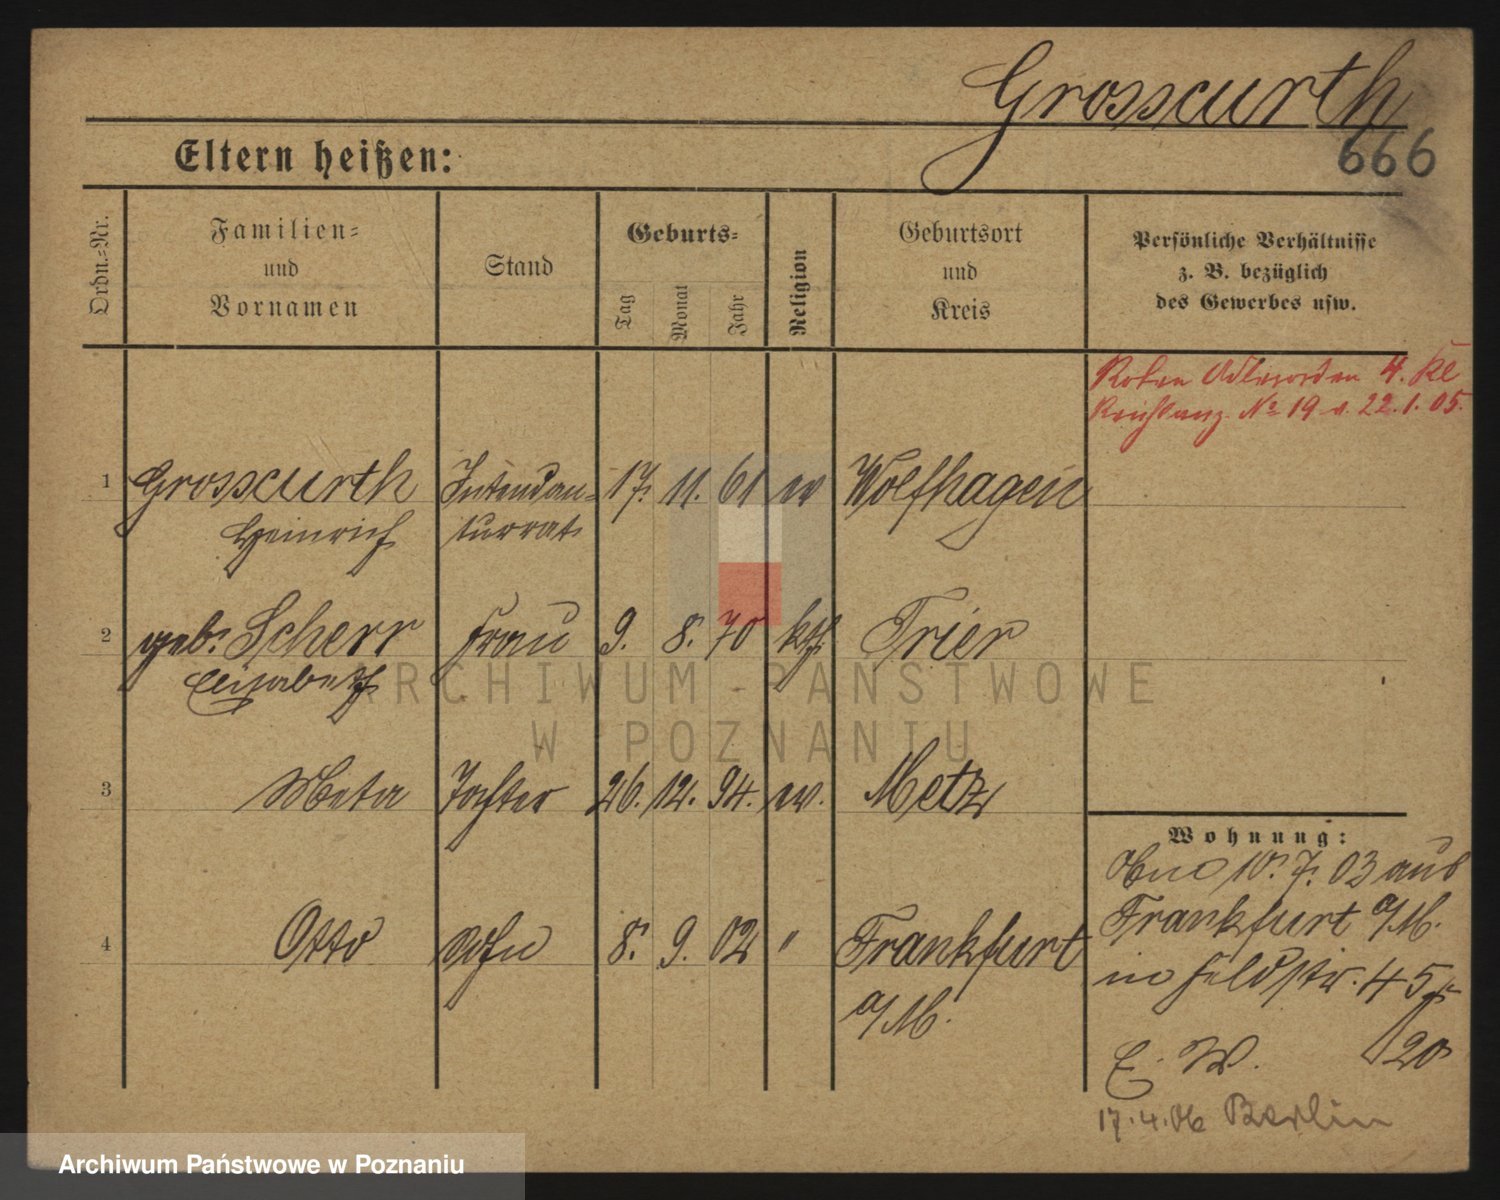 Grosscurth
666
Eltern heißen:
Ordn.-Nr.
Familien- und Vornamen
Stand
Geburts-
Tag
Monat
Jahr
Religion
Geburtsort und Kreis
Persönliche Verhältnisse z. B. bezüglich des Gewerbes usw.
Roten Adlerorden 4. Kl
Reichsanz. No 19 v. 22.1.05.
1 Grosscurth Intendan- 17. 11. 61 ev Wolfhagen
Heinrich turrat
2 geb. Scherr Frau 9. 8. 70 kth. Trier
Elisabeth
3 Meta Tochter 26. 12. 94. ev. Metz
4 Otto Sohn 8. 9. 02 " Frankfurt
a/M.
Wohnung:
10. 7. 03 aus
Frankfurt a/M.
in Feldstr. 45
E. W. 20
17.4.06 Berlin
ARCHIWUM PAŃSTWOWE
W POZNANIU
Archiwum Państwowe w Poznaniu